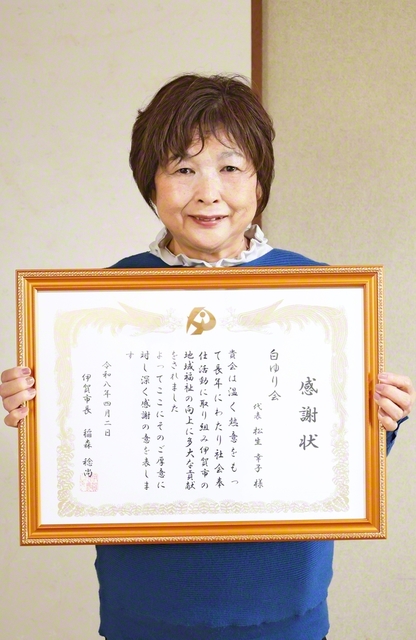 感謝状
白ゆり会
代表 松生 幸子 様
貴会は温く熱意をもっ
て長年にわたり社会奉
仕活動に取り組み伊賀市の
地域福祉の向上に多大な貢献
をされました
よってここにそのご厚意に
対し深く感謝の意を表しま
す
令和八年四月二日
伊賀市長 稲森 稔尚